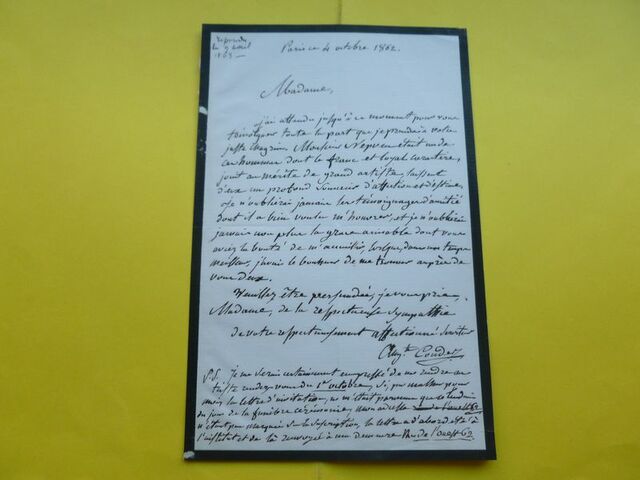 répondu
le 9 avril
1863
Paris ce 4 octobre 1862.
Madame,
j'ai attendu jusqu'à ce moment pour vous
témoigner toute la part que je prends à votre
juste chagrin. Monsieur Nepveu était un de
ces hommes dont le franc et loyal caractère,
joint au mérite de grand artiste, laissent
d'eux un profond souvenir d'affection et d'estime,
je n'oublierai jamais les témoignages d'amitié
dont il a bien voulu m'honorer, et je n'oublierai
jamais non plus la grace aimable dont vous
aviez la bonté de m'accueillir, lorsque, dans un temps
meilleur, j'avais le bonheur de me trouver auprès de
vous deux.
Veuillez être persuadée, je vous prie,
Madame, de la respectueuse sympathie
de votre respectueusement affectionné serviteur
Aug.te Couder
P.S. Je me serais certainement empressé de me rendre au
triste rendez-vous du 1er octobre, si, par malheur pour
moi, la lettre d'invitation, ne m'était parvenue que le lendemain
du jour de la funèbre cérémonie, mon adresse rue de l'ouest 62
n'étant pas marquée sur la suscription, la lettre a d'abord été à
l'institut et de là renvoyée à ma demeure Rue de l'ouest 62